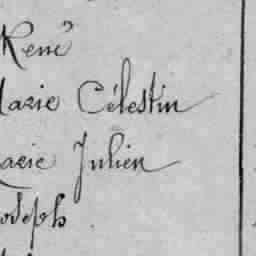 René
Marie Célestin
Marie Julien
Joseph